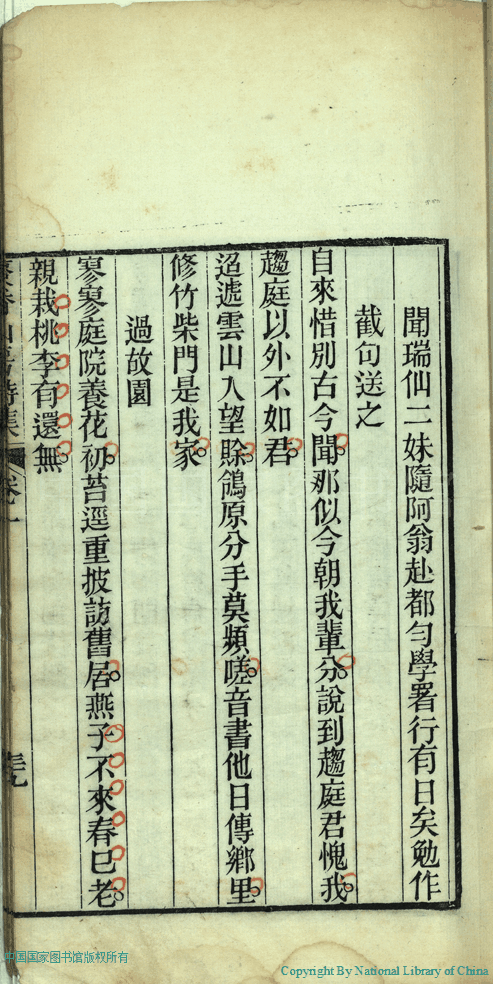 聞瑞仙二妹隨阿翁赴都勻學署行有日矣勉作
截句送之
自來惜別古今聞那似今朝我輩分說到趨庭君愧我
趨庭以外不如君
迢遞雲山入望賒鴒原分手莫頻嗟音書他日傳鄉里
修竹柴門是我家
過故園
寥寥庭院養花初苔逕重披訪舊居燕子不來春已老
親栽桃李有還無
山房詩集 卷一
中国国家图书馆版权所有
Copyright By National Library of China